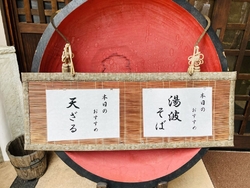 本日の
おすすめ
湯波
そば
本日の
おすすめ
天ざる